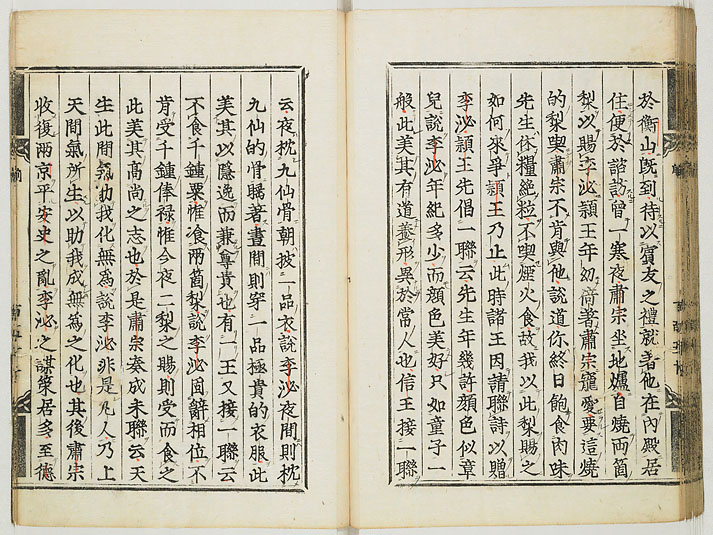 於衡山既到待以賓友之禮就着他在內殿居
住便於諮訪曾一寒夜肅宗坐地爐自燒兩箇
梨以賜李泌頴王年幼倚著肅宗寵愛要這燒
的梨喫肅宗不肯與他說道你終日飽食肉味
先生休糧絕粒不喫煙火食故我以此梨賜之
如何來爭頴王乃止此時諸王因請聯詩以贈
李泌頴王先倡一聯云先生年幾許顏色似章
兒說李泌年紀多少而顏色美好只如童子一
般此美其有道養形異於常人也信王接一聯
云夜枕九仙骨朝披一品衣說李泌夜間則枕
九仙的骨著晝間則穿一品極貴的衣服此
美其以隱逸而兼尊貴也有一王又接一聯云
不食千鍾粟惟飡兩箇梨說李泌固辭相位不
肯受千鍾俸祿惟今夜二梨之賜則受而食之
此美其高尚之志也於是肅宗奏成末聯云天
生此間氣助我化無爲說李泌非是凡人乃上
天間氣所生以助我成無爲之化也其後肅宗
收復兩京平安史之亂李泌之謀策居多至德